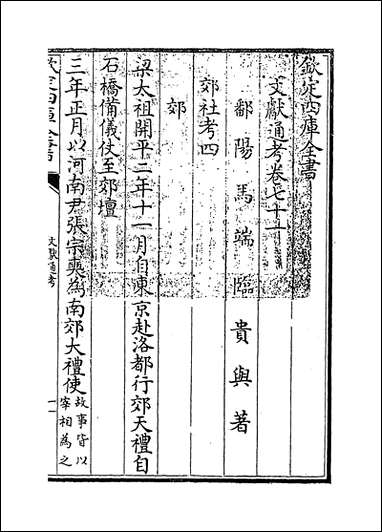 欽定四庫全書
文獻通考卷七十一
鄱陽馬端臨貴與著
郊社考四
郊
梁太祖開平二年十一月自東京赴洛都行郊天禮自
石橋備儀仗至郊壇
三年正月以河南尹張宗奭為南郊大禮使故事皆以
宰相為之
欽定四庫全書
文獻通考
一